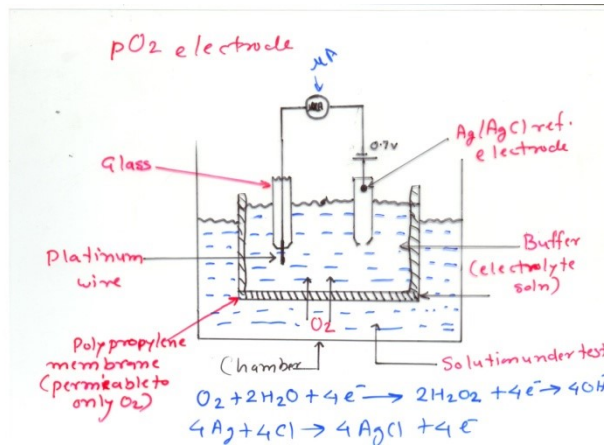 pO2 electrode
μA
0.7v
Ag/AgCl ref.
electrode
Glass
Platinum
wire
Buffer
(electrolyte
soln)
O2
Polypropylene
membrane
(permeable to
only O2)
Chamber
Solution under test
O2 + 2H2O + 4e- → 2H2O2 + 4e- → 4OH
4Ag + 4Cl → 4AgCl + 4e-